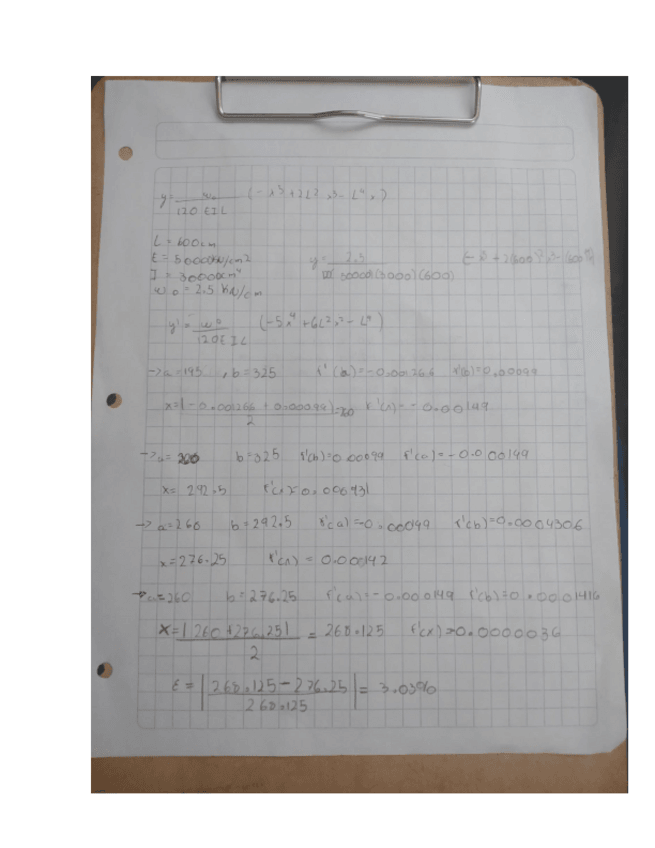 y = w₀ / 120 EIL (-x⁵ + 2L² x³ - L⁴x)
L = 600cm
E = 50000KN/cm2
I = 30000cm⁴
w₀ = 2.5 KN/cm
y = 2.5 / (600)
y' = w₀ / 120EIL (-5x⁴ + 6L²x² - L⁴)
-> a=195 , b=325 f'(a)=-0.001266 f'(b)=0.00099
x=|-0.001266 + 0.00099| / 2 =260 f'(x)=-0.00149
-> a= 260 b=325 f'(b)=0.00099 f'(a)=-0.000149
x= 292.5
-> a=260 b=292.5 f'(a)=-0.00149 f'(b)=0.0004306
x=276.25 f'(x) = 0.00142
-> a=260 b=276.25 f'(a)=-0.000149 f'(b)=0.0001416
x=|260+276.25| / 2 = 268.125 f'(x)=0.0000036
ε = |268.125-276.25 / 268.125| = 3.03%